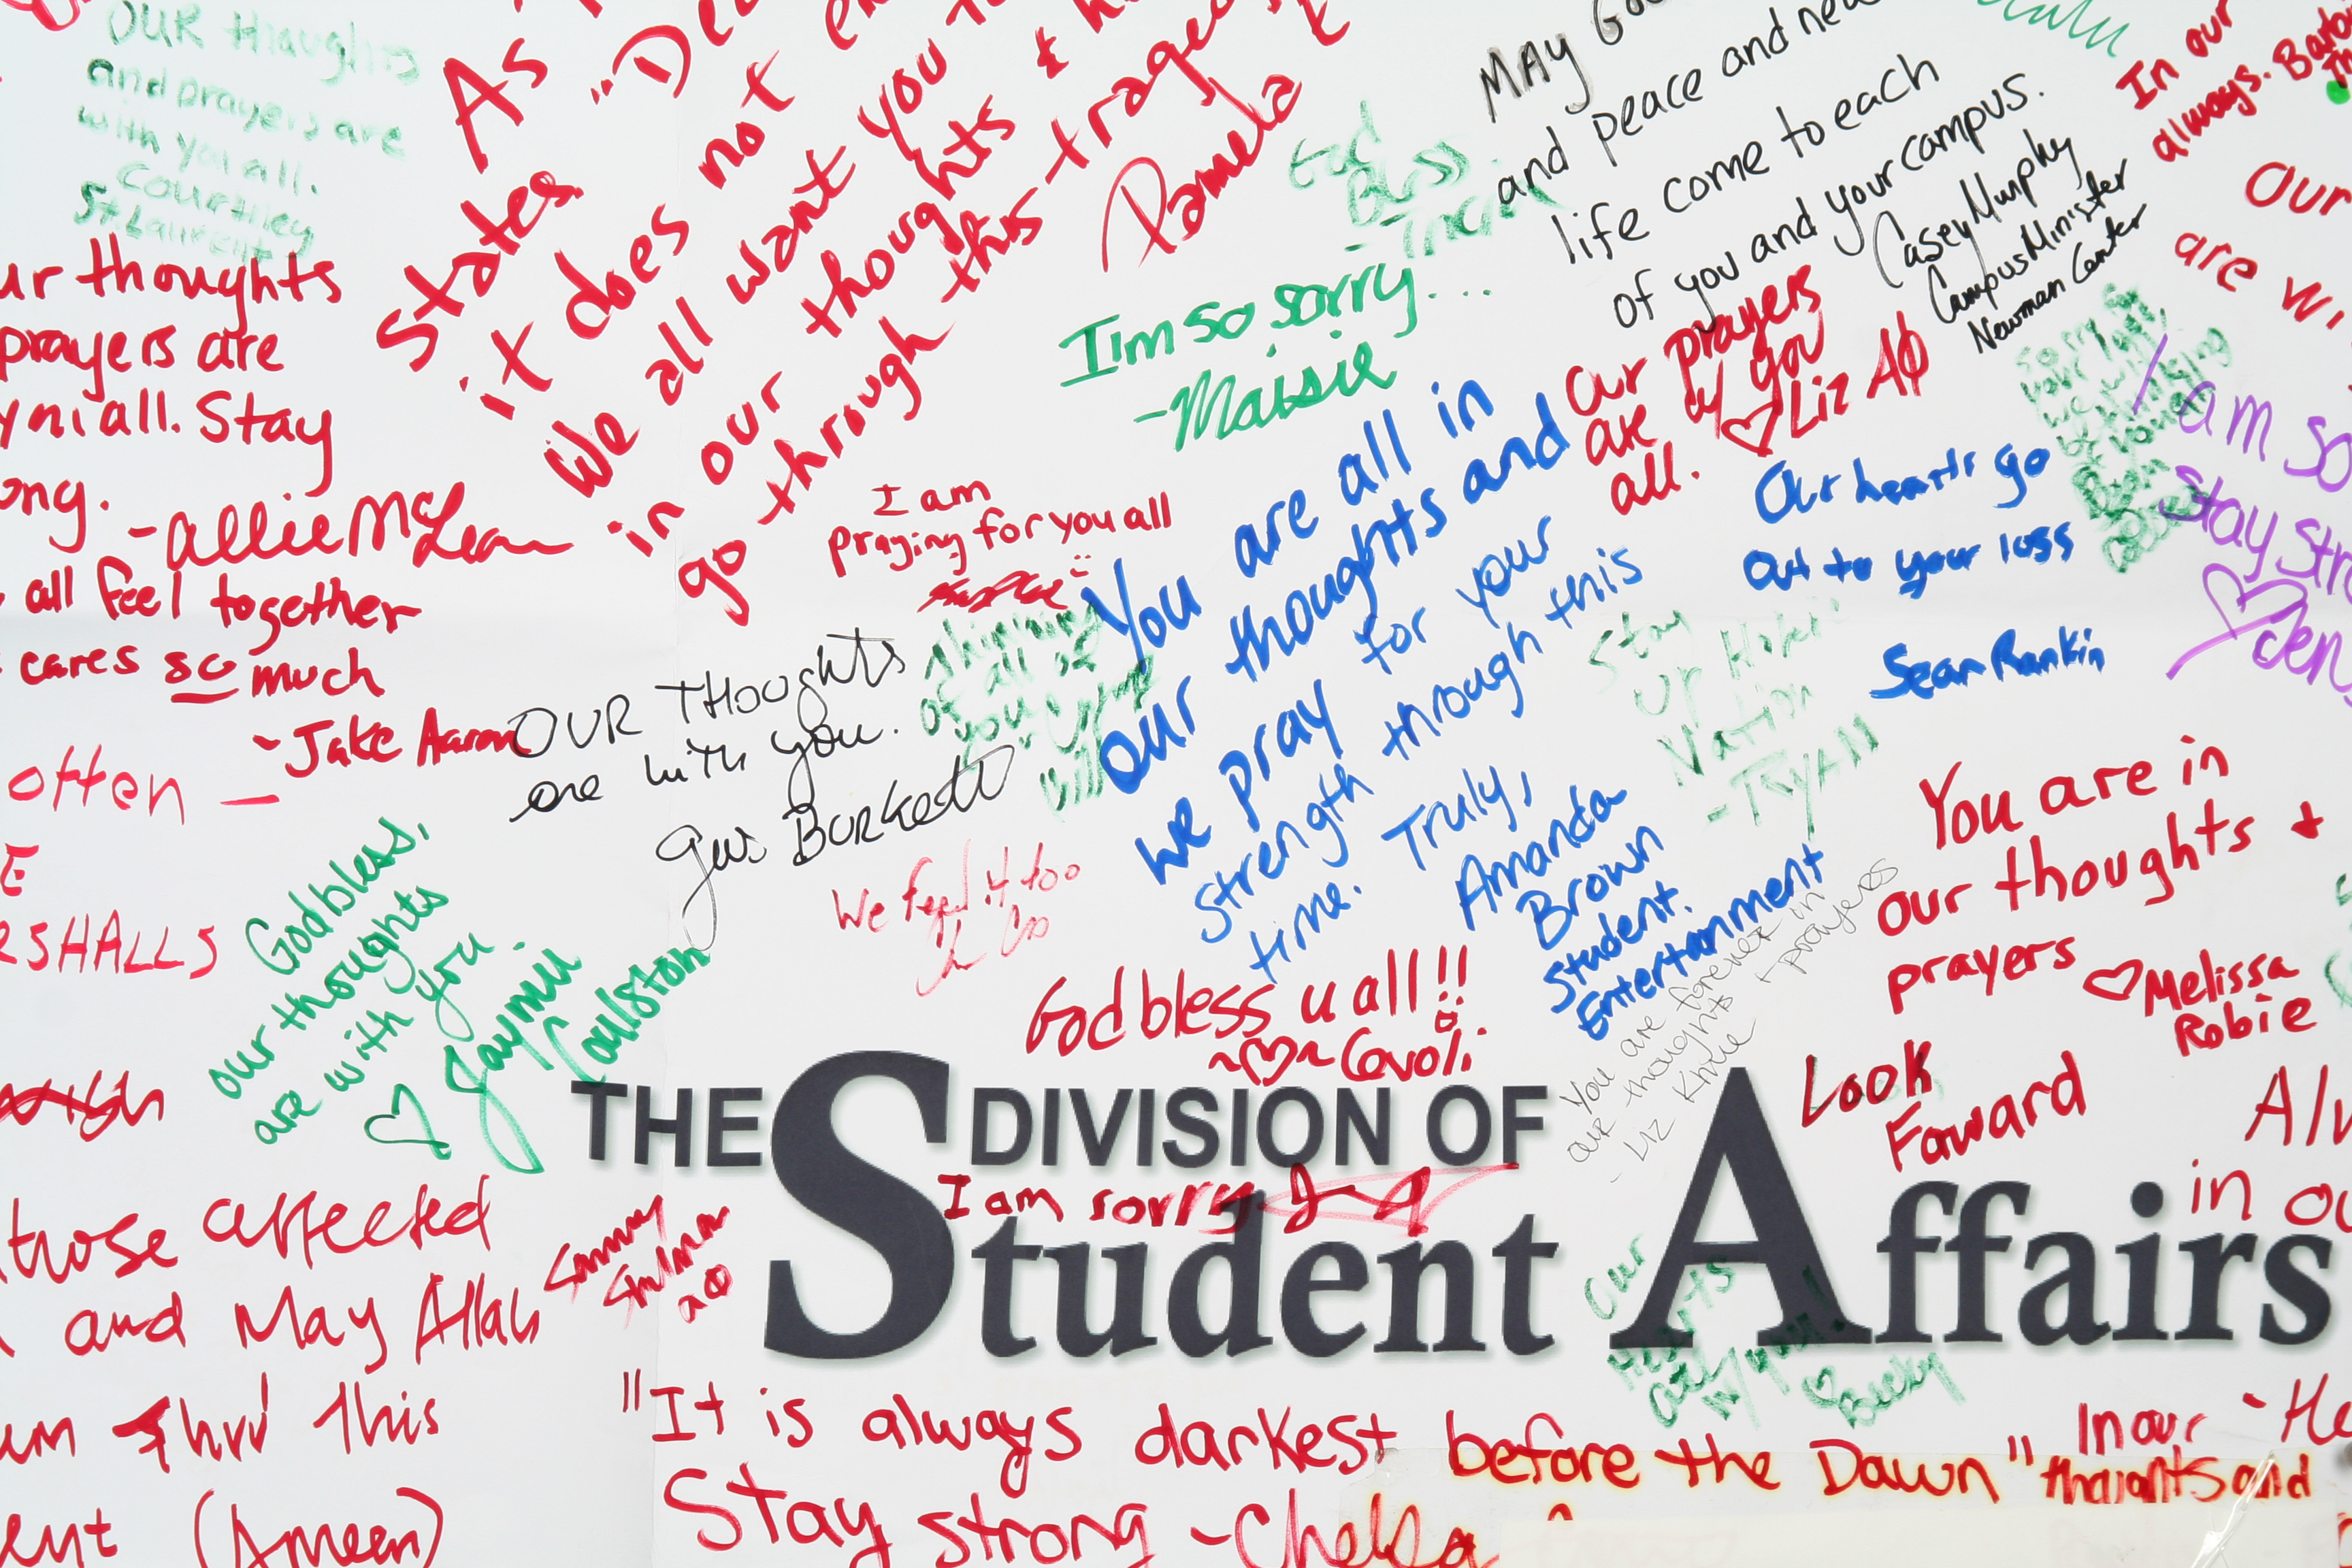 OUR thoughts
and prayers are
with you all.
Courtney
St. Laurent
ur thoughts
prayers are
all. Stay
ong.
-Allie McLean
all feel together
cares so much
-Jake Aaron
otten —
E
RSHALLS
God bless,
our thoughts
are with you.
♡ Jaymee
Coulston
those affected
and May Allah
um thru this
ent (Ameen)
As
States
"De
it does not
We all want you
in our thoughts &
go through this trage
Pamela
God
Bless
-Tricia
I'm so sorry...
-Maisie
I am
praying for you all
OUR THOUGHTS
are with you.
Gus Burkett
thinking
of all of
you
We feel it too
God bless u all!!
~♡~ Caroli
You are all in
our thoughts and
We pray for your
strength through this
time. Truly,
Amanda
Brown
Student
Entertainment
MAY
and peace and new
life come to each
of you and your campus.
Casey Murphy
Campus Minister
Newman Center
Our prayers
are w/ you
all. ♡ Liz AΦ
Our hearts go
out to your loss
Sean Rankin
Stay
up Hokie
Nation
-Ryan
In our
always.
Our
are wi
I am so
stay str
♡ Jen
sorry for
your loss,
we will
be
You are in
our thoughts +
prayers ♡ Melissa
Robie
You are forever in
our thoughts + prayers
- Liz
Look
Forward
Alw
in ou
THE DIVISION OF
Student Affairs
I am sorry
Our
Hearts
are
w/ you!
♡ Becky
"It is always darkest before the Dawn"
Stay strong -Chelsea
In our
thoughts and
- He